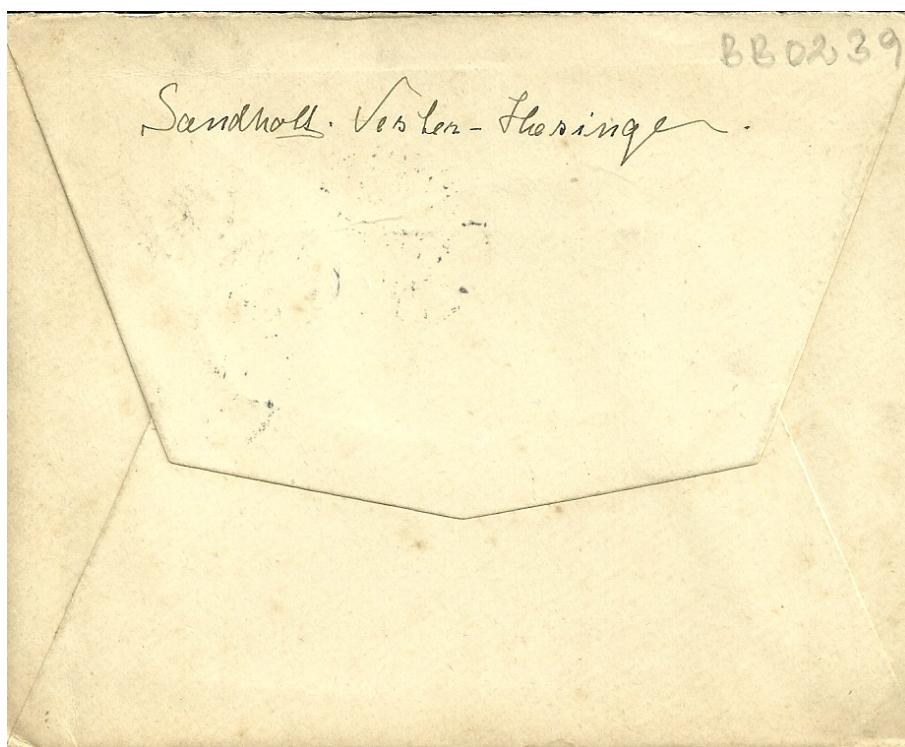 BB0239
Sandholt. Vester-Hæsinge.